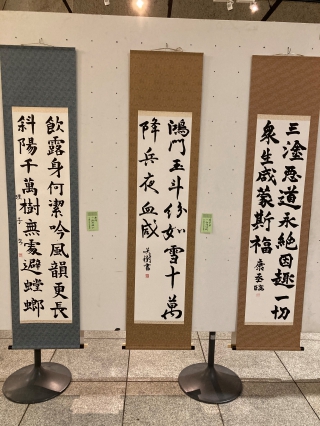 三塗惡道永絶因趣一切
衆生咸蒙斯福
鴻門玉斗紛如雪十萬
降兵夜血咸
飲露身何潔吟風韻更長
斜陽千萬樹無處避螳螂